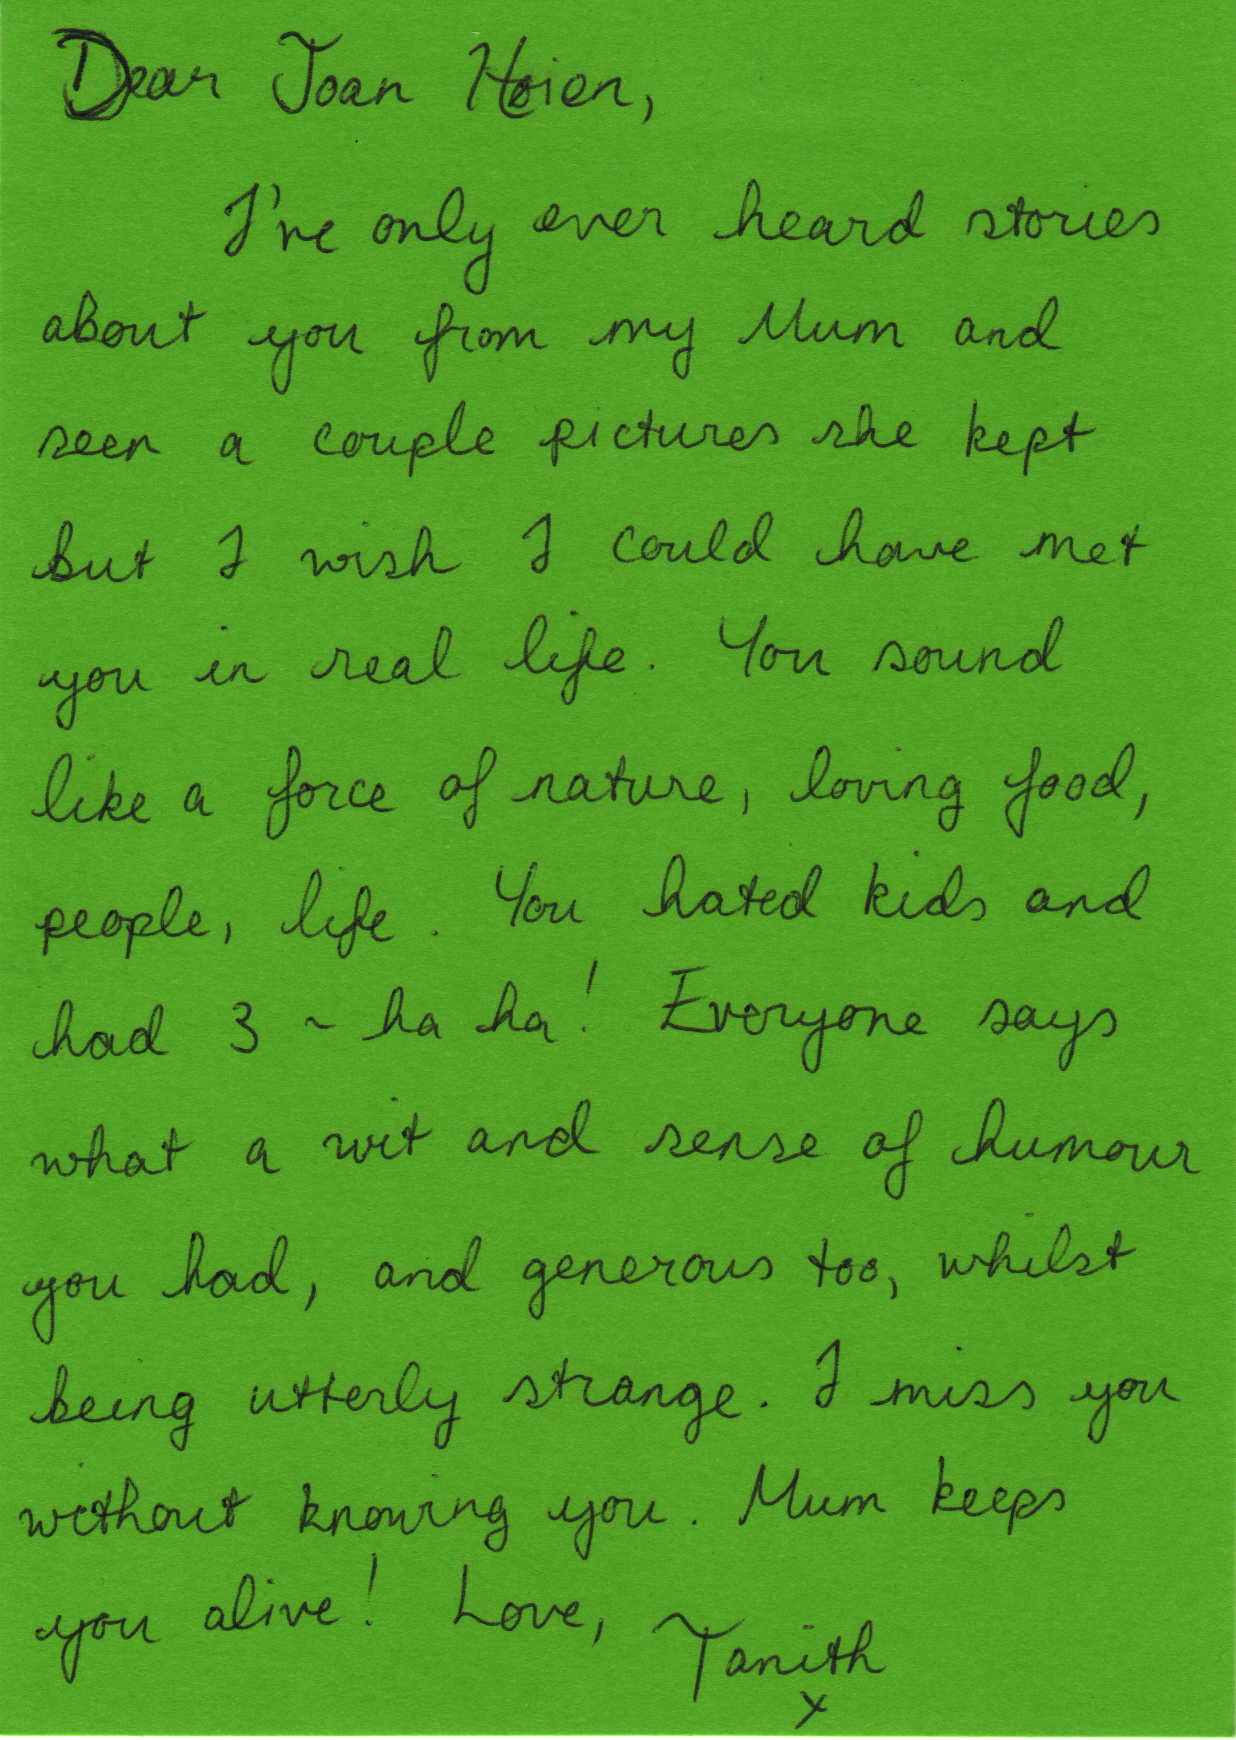 Dear Joan Hsien,
I've only ever heard stories
about you from my Mum and
seen a couple pictures she kept
but I wish I could have met
you in real life. You sound
like a force of nature, loving food,
people, life. You hated kids and
had 3 ~ ha ha! Everyone says
what a wit and sense of humour
you had, and generous too, whilst
being utterly strange. I miss you
without knowing you. Mum keeps
you alive! Love, Tanith
x